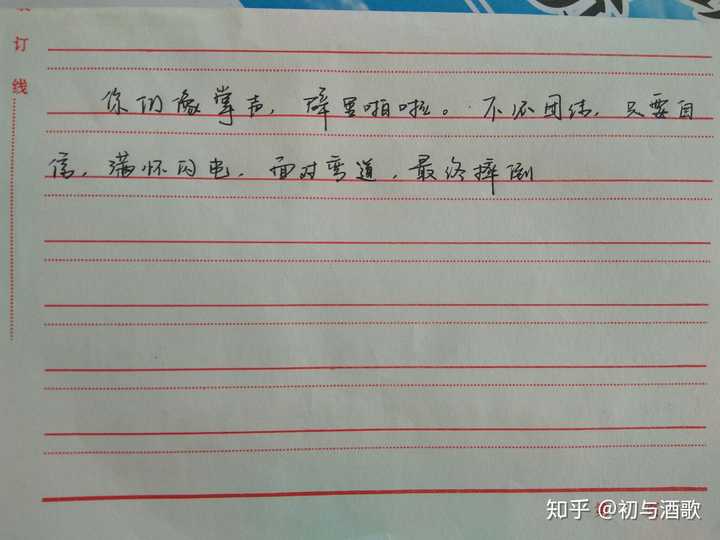 订
线
你的像掌声，噼里啪啦。不用团结，只要自
信，满怀闪电，面对弯道，最终摔倒
知乎 @初与酒歌